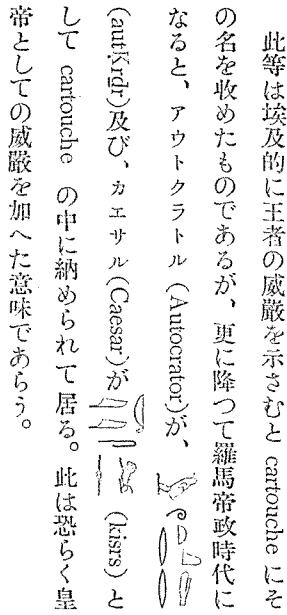 此等は埃及的に王者の威嚴を示さむと cartouche にそ
の名を收めたものであるが、更に降つて羅馬帝政時代に
なると、アウトクラトル (Autocrator)が、
(autKrdr)及び、カエサル(Caesar)が (kisrs) と
して cartouche の中に納められて居る。此は恐らく皇
帝としての威嚴を加へた意味であらう。